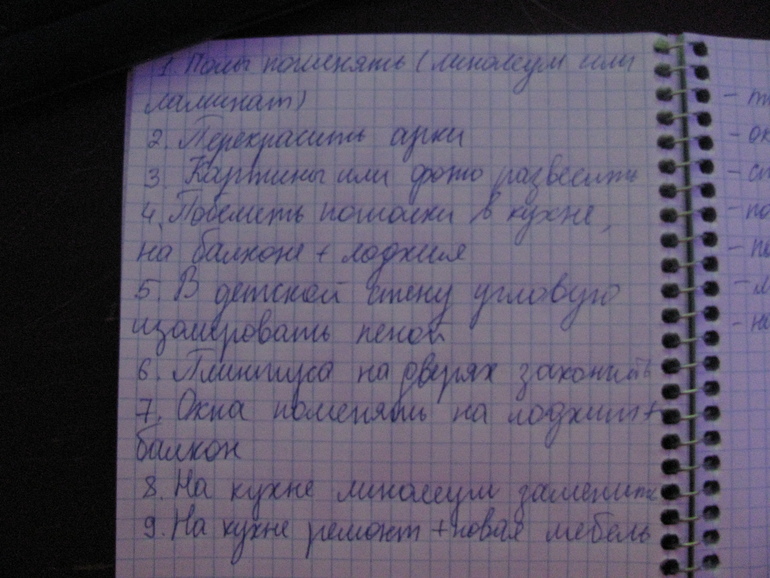 1. Полы поменять (линолеум или
ламинат)
2. Перекрасить арки
3. Картины или фото развесить
4. Побелить потолки в кухне,
на балконе + лоджия
5. В детской стену угловую
изолировать пеной
6. Плинтуса на дверях закончить
7. Окна поменять на лоджии +
балкон
8. На кухне линолеум заменить
9. На кухне ремонт + новая мебель